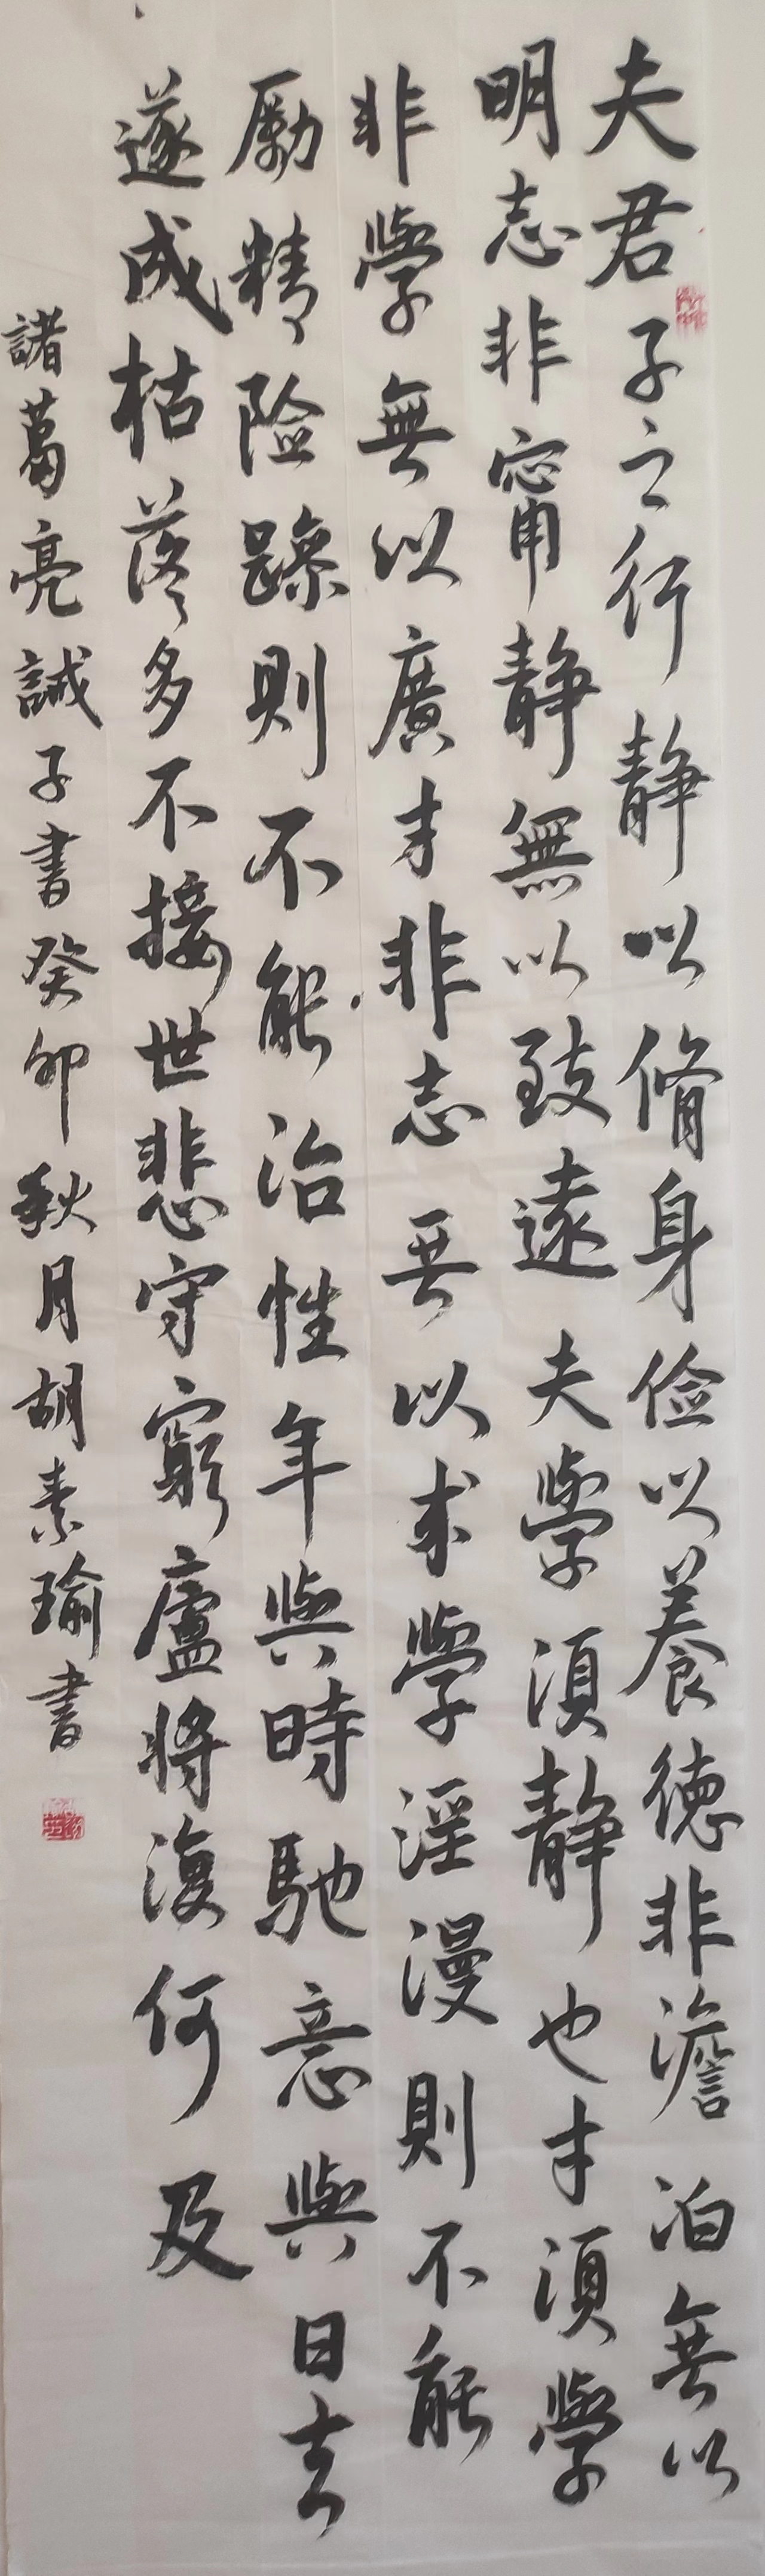 夫君子之行静以脩身俭以養德非澹泊無以
明志非甯静無以致遠夫學須静也才須學
非學無以廣才非志無以求學淫漫則不能
勵精险躁則不能治性年與時馳意與日去
遂成枯落多不接世悲守窮廬将復何及
諸葛亮誡子書癸卯秋月胡素瑜書